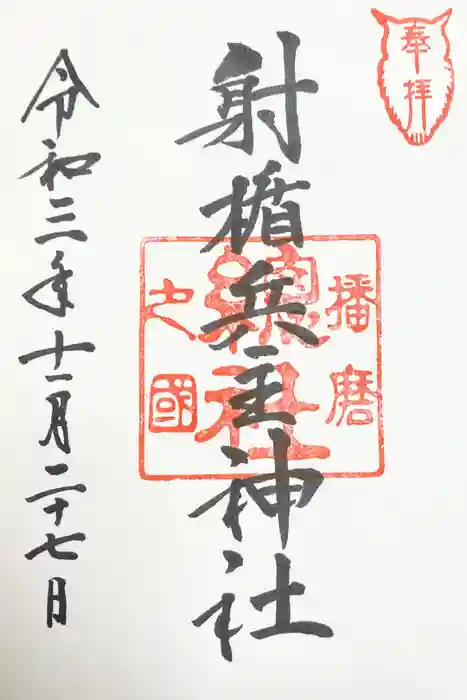 奉拝
播磨
之國
総社
射楯兵主神社
令和三年十一月二十七日